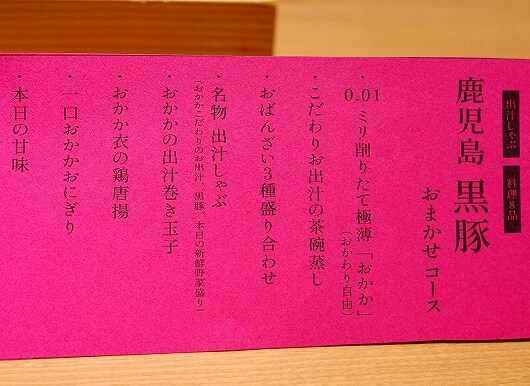 出汁しゃぶ 料理8品
鹿児島 黒豚
おまかせコース
・0.01ミリ削りたて極薄「おかか」
（おかわり自由）
・こだわりお出汁の茶碗蒸し
・おばんざい3種盛り合わせ
・名物 出汁しゃぶ
（おかかこだわりのお出汁、黒豚、本日の新鮮野菜盛り）
・おかかの出汁巻き玉子
・おかか衣の鶏唐揚
・一口おかかおにぎり
・本日の甘味